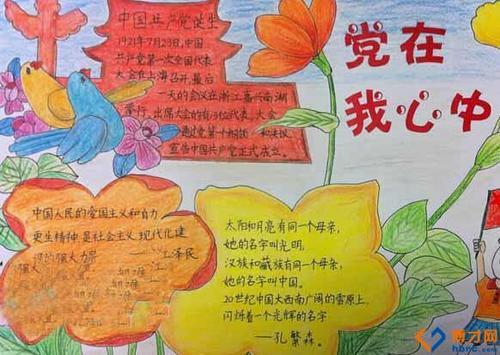 中国共产党诞生
1921年7月23日,中国
共产党第一次全国代表
大会在上海召开,最后
一天的会议在浙江嘉兴南湖
举行,出席大会的有13位代表,大会
通过党第一个纲领 和决议,
宣告中国共产党正式成立。
党在
我心中
中国人民的爱国主义和自力
更生精神,是社会主义现代化建
设的强大力量
——江泽民
太阳和月亮有同一个母亲,
她的名字叫光明,
汉族和藏族有同一个母亲,
她的名字叫中国。
20世纪中国大西南广阔的雪原上,
闪烁着一个光辉的名字
——孔繁森。
博才网
hbrc.com